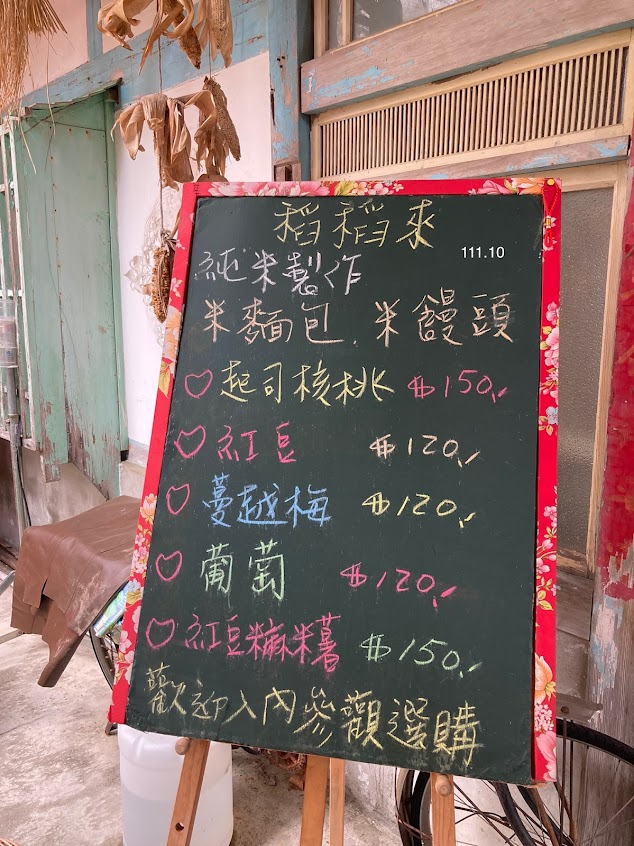 稻稻來
111.10
純米製作
米麵包.米饅頭
♡起司核桃 $150.-
♡紅豆 $120.-
♡蔓越梅 $120.-
♡葡萄 $120.-
♡紅豆麻糬 $150.-
歡迎入內參觀選購